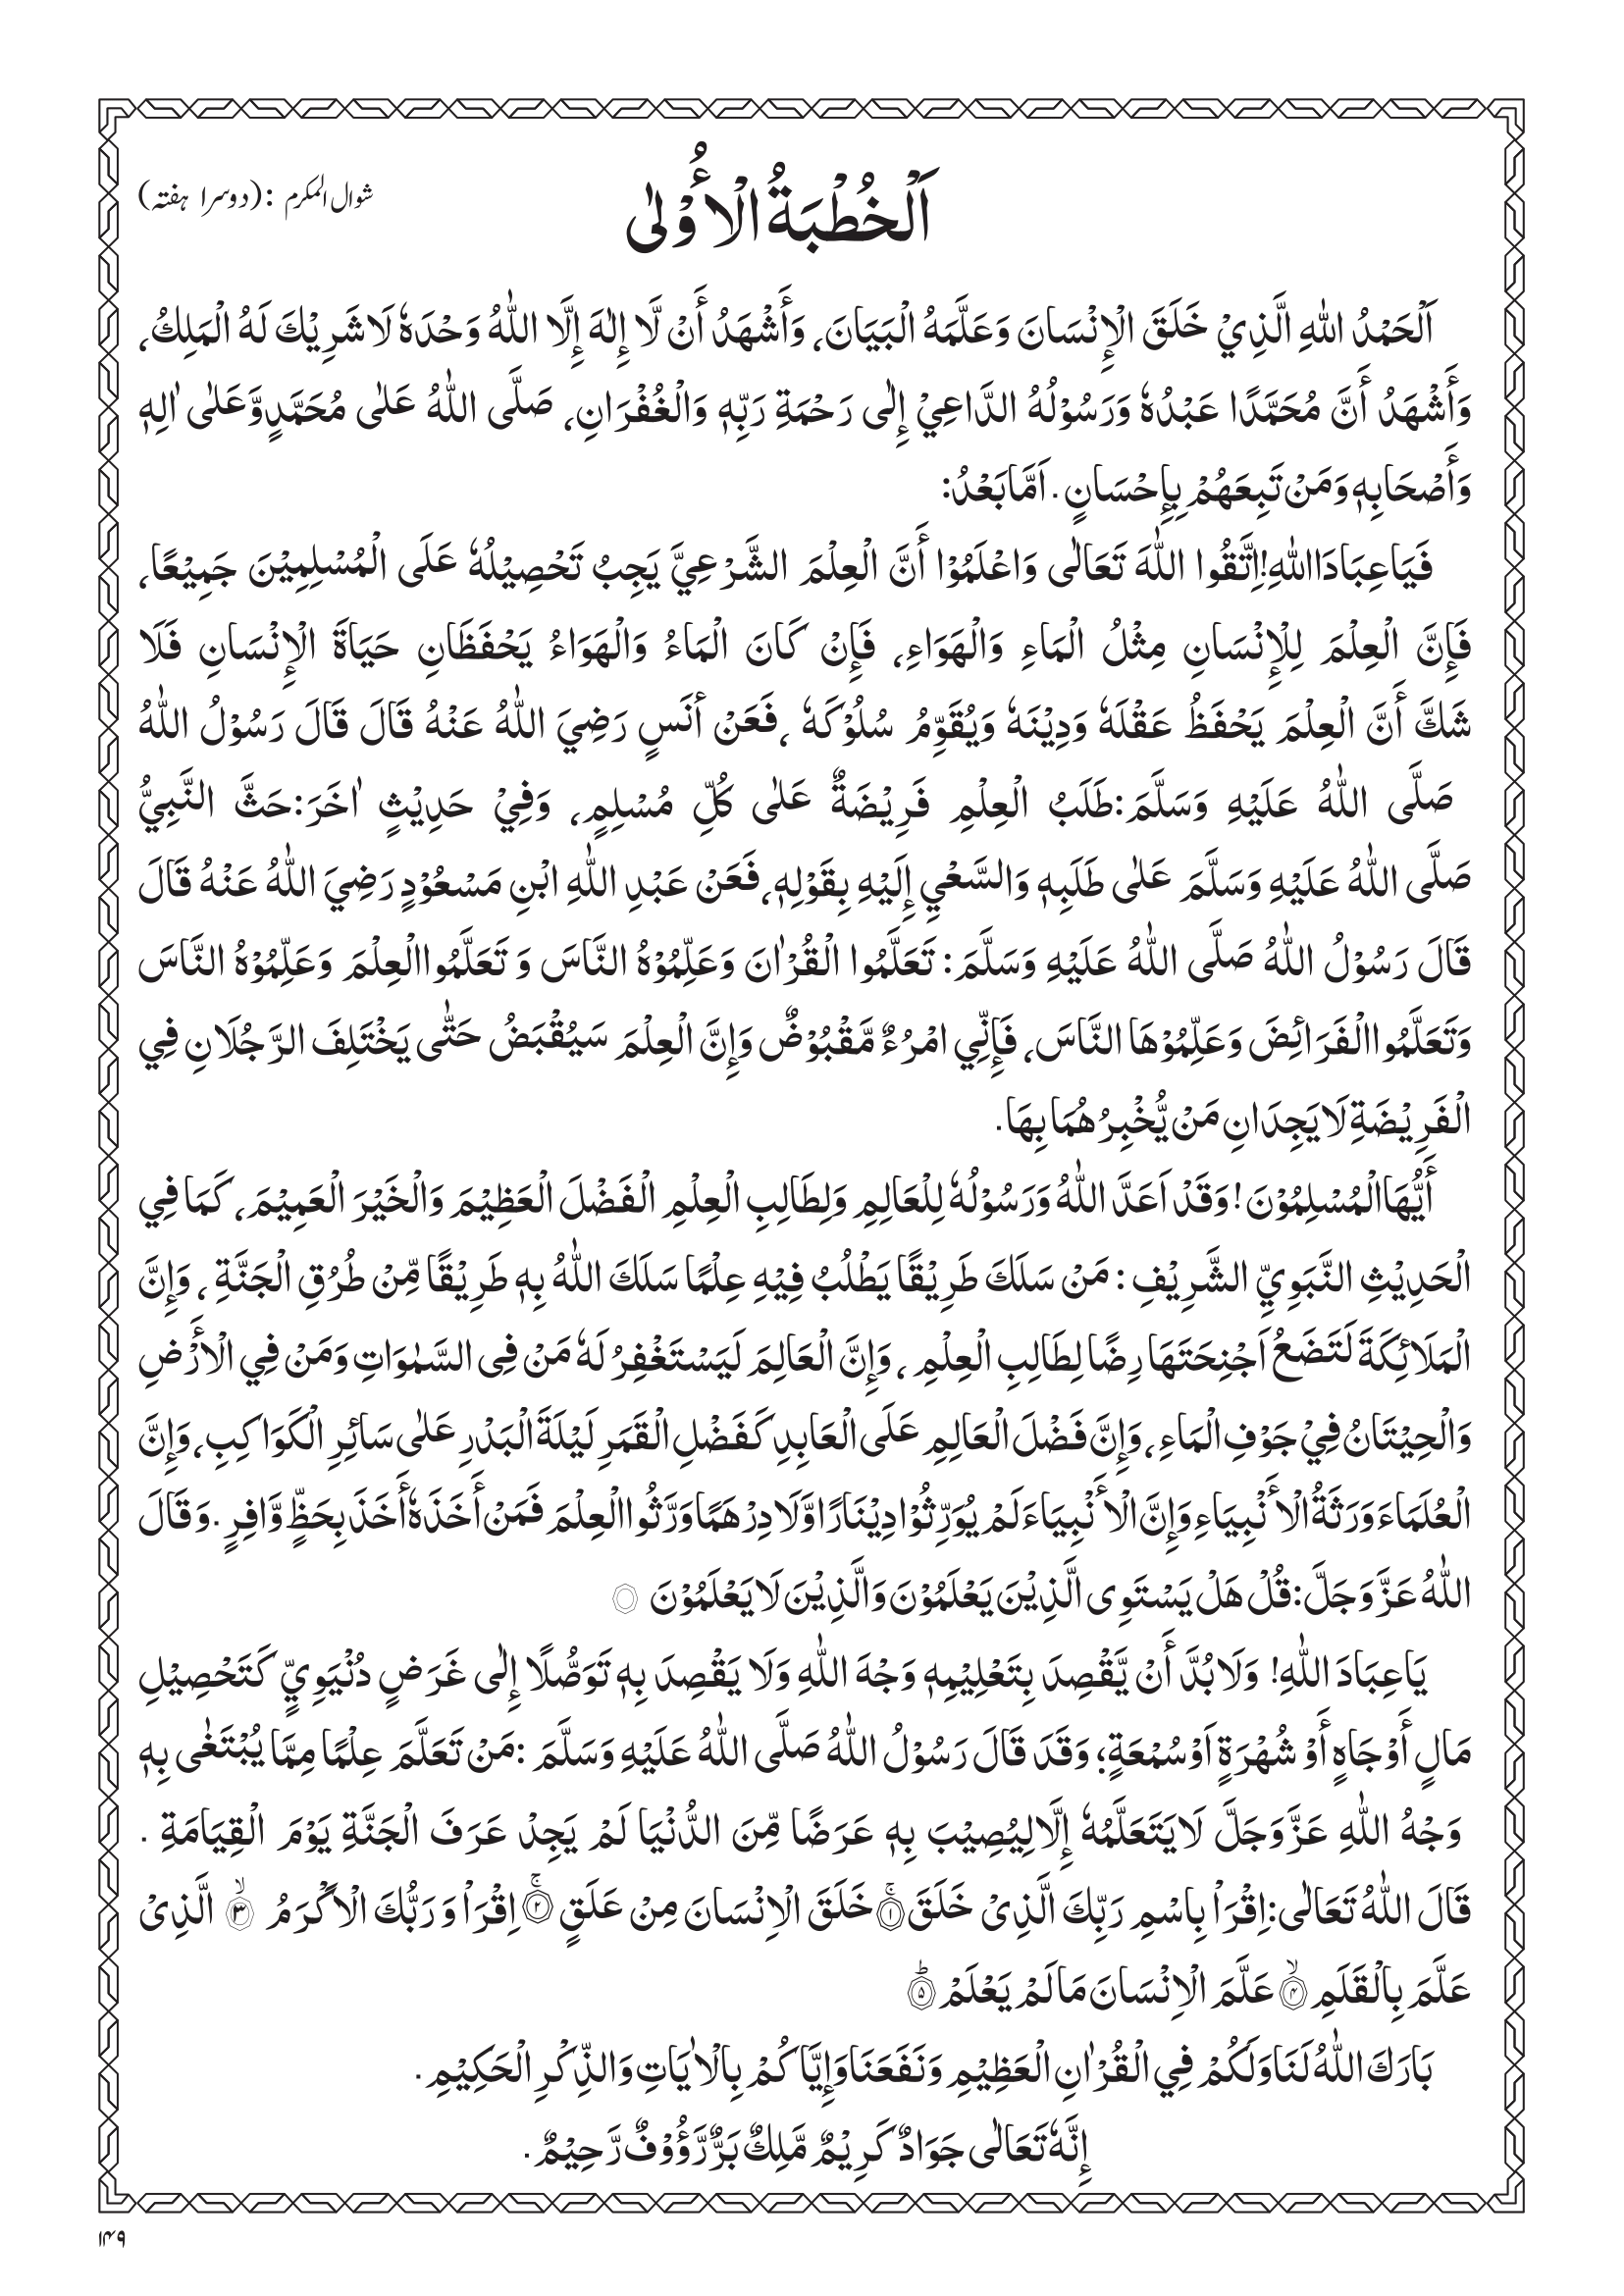 شوال المکرم :(دوسرا ہفتہ)
اَلْخُطْبَةُ الْأُوْلٰى
اَلْحَمْدُ اللهِ الَّذِيْ خَلَقَ الْإِنْسَانَ وَعَلَّمَهُ الْبَيَانَ، وَأَشْهَدُ أَنْ لَّا إِلٰهَ إِلَّا اللهُ وَحْدَهٗ لَا شَرِيْكَ لَهُ الْمَلِكُ،
وَأَشْهَدُ أَنَّ مُحَمَّدًا عَبْدُهٗ وَرَسُوْلُهُ الدَّاعِيْ إِلٰى رَحْمَةِ رَبِّهٖ وَالْغُفْرَانِ، صَلَّى اللهُ عَلٰى مُحَمَّدٍ وَّعَلٰى اٰلِهٖ
وَأَصْحَابِهٖ وَمَنْ تَبِعَهُمْ بِإِحْسَانٍ . اَمَّا بَعْدُ:
فَيَاعِبَادَاللهِ!اِتَّقُوا اللهَ تَعَالٰى وَاعْلَمُوْا أَنَّ الْعِلْمَ الشَّرْعِيَّ يَجِبُ تَحْصِيْلُهٗ عَلَى الْمُسْلِمِيْنَ جَمِيْعًا،
فَإِنَّ الْعِلْمَ لِلْإِنْسَانِ مِثْلُ الْمَاءِ وَالْهَوَاءِ، فَإِنْ كَانَ الْمَاءُ وَالْهَوَاءُ يَحْفَظَانِ حَيَاةَ الْإِنْسَانِ فَلَا
شَكَّ أَنَّ الْعِلْمَ يَحْفَظُ عَقْلَهٗ وَدِيْنَهٗ وَيُقَوِّمُ سُلُوْكَهٗ ،فَعَنْ أنَسٍ رَضِيَ اللهُ عَنْهُ قَالَ قَالَ رَسُوْلُ اللهُ
صَلَّى اللهُ عَلَيْهِ وَسَلَّمَ:طَلَبُ الْعِلْمِ فَرِيْضَةٌ عَلٰى كُلِّ مُسْلِمٍ، وَفِيْ حَدِيْثٍ اٰخَرَ:حَثَّ النَّبِيُّ
صَلَّى اللهُ عَلَيْهِ وَسَلَّمَ عَلٰى طَلَبِهٖ وَالسَّعْيِ إِلَيْهِ بِقَوْلِهٖ،فَعَنْ عَبْدِ اللهِ ابْنِ مَسْعُوْدٍ رَضِيَ اللهُ عَنْهُ قَالَ
قَالَ رَسُوْلُ اللهُ صَلَّى اللهُ عَلَيْهِ وَسَلَّمَ: تَعَلَّمُوا الْقُرْاٰنَ وَعَلِّمُوْهُ النَّاسَ وَ تَعَلَّمُواالْعِلْمَ وَعَلِّمُوْهُ النَّاسَ
وَتَعَلَّمُواالْفَرَائِضَ وَعَلِّمُوْهَا النَّاسَ، فَإِنِّي امْرُءٌ مَّقْبُوْضٌ وَإِنَّ الْعِلْمَ سَيُقْبَضُ حَتّٰى يَخْتَلِفَ الرَّجُلَانِ فِي
الْفَرِيْضَةِ لَا يَجِدَانِ مَنْ يُّخْبِرُهُمَا بِهَا.
أَيُّهَاالْمُسْلِمُوْنَ !وَقَدْ اَعَدَّ اللهُ وَرَسُوْلُهٗ لِلْعَالِمِ وَلِطَالِبِ الْعِلْمِ الْفَضْلَ الْعَظِيْمَ وَالْخَيْرَ الْعَمِيْمَ، كَمَا فِي
الْحَدِيْثِ النَّبَوِيِّ الشَّرِيْفِ : مَنْ سَلَكَ طَرِيْقًا يَطْلُبُ فِيْهِ عِلْمًا سَلَكَ اللهُ بِهٖ طَرِيْقًا مِّنْ طُرُقِ الْجَنَّةِ ، وَإِنَّ
الْمَلَائِكَةَ لَتَضَعُ اَجْنِحَتَهَا رِضًا لِطَالِبِ الْعِلْمِ ، وَإِنَّ الْعَالِمَ لَيَسْتَغْفِرُ لَهٗ مَنْ فِى السَّمٰوَاتِ وَمَنْ فِي الْأَرْضِ
وَالْحِيْتَانُ فِيْ جَوْفِ الْمَاءِ ،وَإِنَّ فَضْلَ الْعَالِمِ عَلَى الْعَابِدِ كَفَضْلِ الْقَمَرِ لَيْلَةَ الْبَدْرِ عَلٰى سَائِرِ الْكَوَاكِبِ،وَإِنَّ
الْعُلَمَاءَ وَرَثَةُ الْأَنْبِيَاءِ وَإِنَّ الْأَنْبِيَاءَ لَمْ يُوَرِّثُوْا دِيْنَارًا وَّلَا دِرْهَمًا وَرَّثُوا الْعِلْمَ فَمَنْ أَخَذَهٗ أَخَذَ بِحَظٍّ وَّافِرٍ . وَقَالَ
اللهُ عَزَّ وَجَلَّ:قُلْ هَلْ يَسْتَوِى الَّذِيْنَ يَعْلَمُوْنَ وَالَّذِيْنَ لَا يَعْلَمُوْنَ ۝
يَاعِبَادَ اللهِ! وَلَابُدَّ أَنْ يَّقْصِدَ بِتَعْلِيْمِهٖ وَجْهَ اللهِ وَلَا يَقْصِدَ بِهٖ تَوَصُّلًا إِلٰى غَرَضٍ دُنْيَوِيٍّ كَتَحْصِيْلِ
مَالٍ أَوْجَاهٍ أَوْ شُهْرَةٍ اَوْسُمْعَةٍ؛ وَقَدَ قَالَ رَسُوْلُ اللهُ صَلَّى اللهُ عَلَيْهِ وَسَلَّمَ :مَنْ تَعَلَّمَ عِلْمًا مِمَّا يُبْتَغٰى بِهٖ
وَجْهُ اللهِ عَزَّوَجَلَّ لَايَتَعَلَّمُهٗ إِلَّالِيُصِيْبَ بِهٖ عَرَضًا مِّنَ الدُّنْيَا لَمْ يَجِدْ عَرَفَ الْجَنَّةِ يَوْمَ الْقِيَامَةِ .
قَالَ اللهُ تَعَالٰى:اِقْرَاْ بِاسْمِ رَبِّكَ الَّذِىْ خَلَقَ ۚ‏﴿۱﴾ خَلَقَ الْاِنْسَانَ مِنْ عَلَقٍ ۚ‏﴿۲﴾ اِقْرَاْ وَ رَبُّكَ الْاَكْرَمُ ۙ‏﴿۳﴾ الَّذِىْ
عَلَّمَ بِالْقَلَمِ ۙ‏﴿۴﴾ عَلَّمَ الْاِنْسَانَ مَا لَمْ يَعْلَمْ ؕ‏﴿۵﴾
بَارَكَ اللهُ لَنَا وَلَكُمْ فِي الْقُرْاٰنِ الْعَظِيْمِ وَنَفَعَنَا وَإِيَّاكُمْ بِالْاٰيَاتِ وَالذِّكْرِ الْحَكِيْمِ .
إِنَّهٗ تَعَالٰى جَوَادٌ كَرِيْمٌ مَّلِكٌ بَرٌّ رَّؤُوْفٌ رَّحِيْمٌ .
۱۴۹